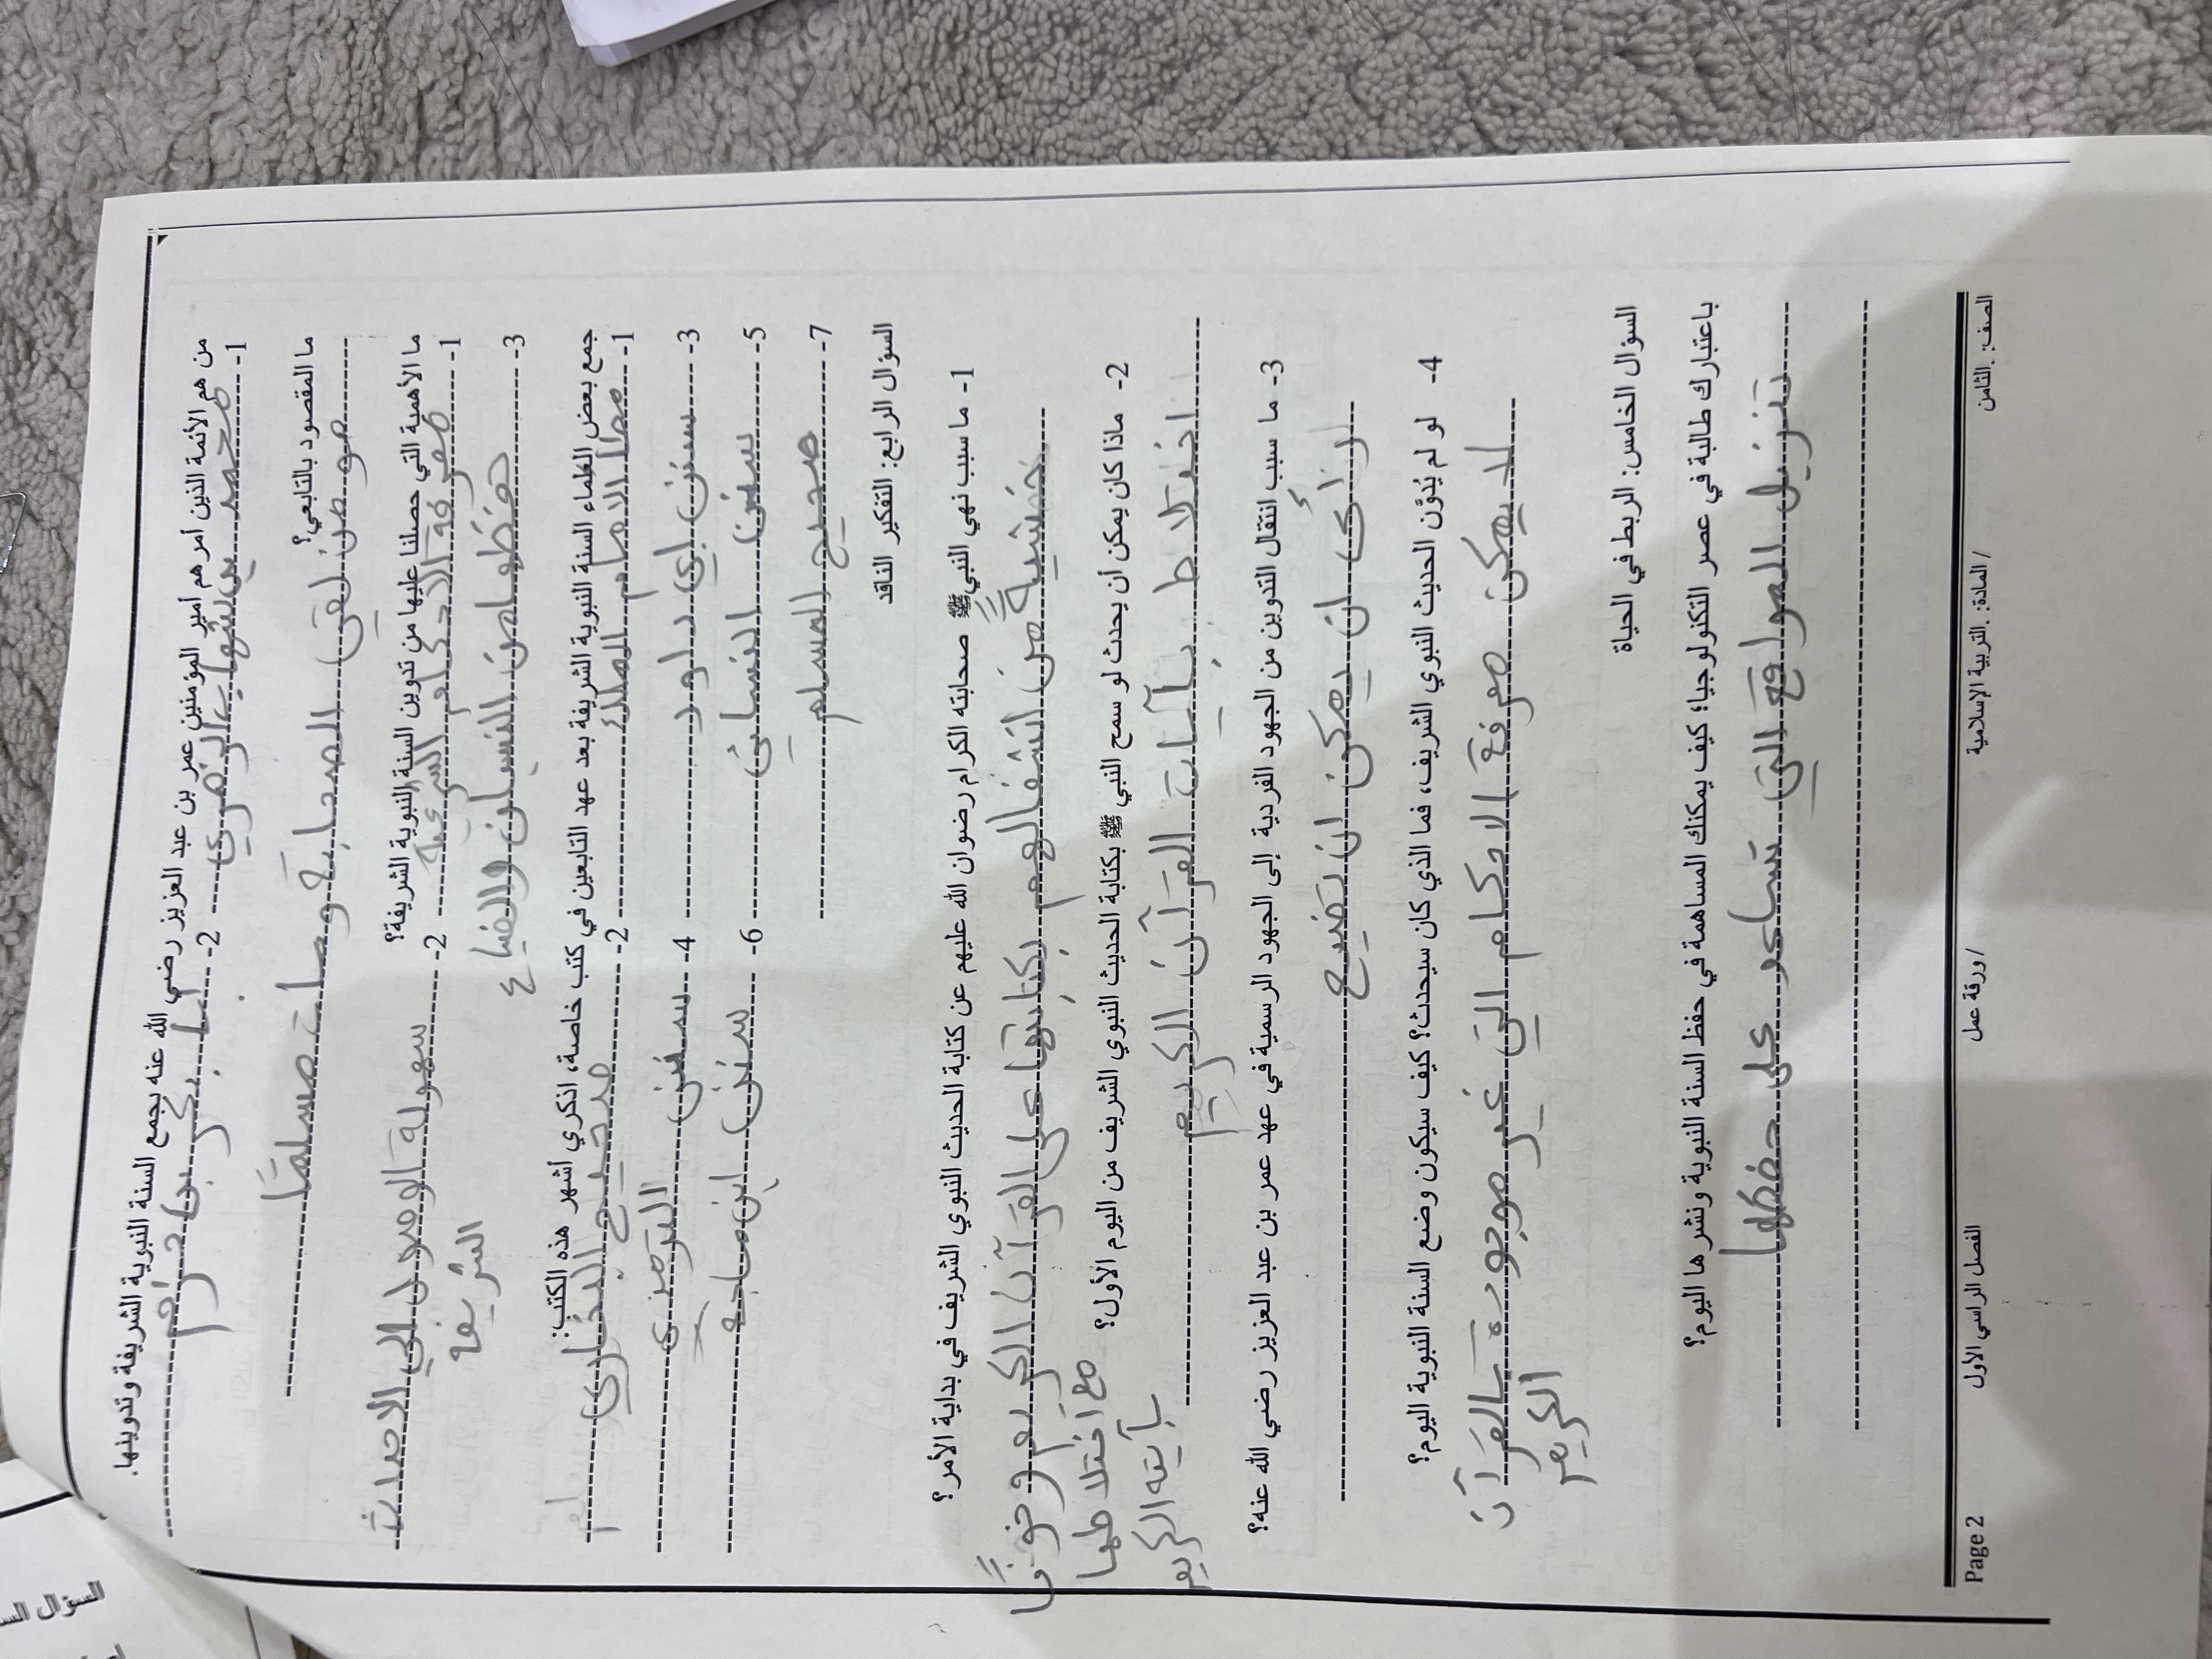 من هم الأئمة الذين أمرهم أمير المؤمنين عمر بن عبد العزيز رضي الله عنه بجمع السنة النبوية الشريفة وتدوينها.
1- محمد بن شهاب الزهري 2- ابا بكر بن حزم
ما المقصود بالتابعي؟
هو من لقي الصحابة ومات مسلمًا
ما الأهمية التي حصلنا عليها من تدوين السنة النبوية الشريفة؟
1- معرفة الاحكام الشرعية 2- سهولة الوصول إلى الاحاديث
الشريفة
3- حفظها من النسيان والضياع
جمع بعض العلماء السنة النبوية الشريفة بعد عهد التابعين في كتب خاصة، اذكري أشهر هذه الكتب:
1- موطأ الامام المالك 2- صحيح البخاري
3- سنن ابي داود 4- سنن الترمذي
5- سنن النسائي 6- سنن ابن ماجه
7- صحيح المسلم
السؤال الرابع: التفكير الناقد
1- ما سبب نهي النبي ﷺ صحابته الكرام رضوان الله عليهم عن كتابة الحديث النبوي الشريف في بداية الأمر؟
خشيةً من انشغالهم بكتابتها على القرآن الكريم وخوفًا
مع اختلاطها
بآيته الكريم
2- ماذا كان يمكن أن يحدث لو سمح النبي ﷺ بكتابة الحديث النبوي الشريف من اليوم الأول؟
اختلاط بآيات القرآن الكريم
3- ما سبب انتقال التدوين من الجهود الفردية إلى الجهود الرسمية في عهد عمر بن عبد العزيز رضي الله عنه؟
لان يمكن ان تضيع
4- لو لم يُدوَّن الحديث النبوي الشريف، فما الذي كان سيحدث؟ كيف سيكون وضع السنة النبوية اليوم؟
لا يمكن معرفة الاحكام التي غير موجودة بالقرآن
الكريم
السؤال الخامس: الربط في الحياة
باعتبارك طالبة في عصر التكنولوجيا؛ كيف يمكنك المساهمة في حفظ السنة النبوية ونشرها اليوم؟
تنزيل المواقع التي تساعد على حفظها
الصف: .الثامن /المادة: .التربية الإسلامية /ورقة عمل الفصل الراسي الأول Page 2
السؤال